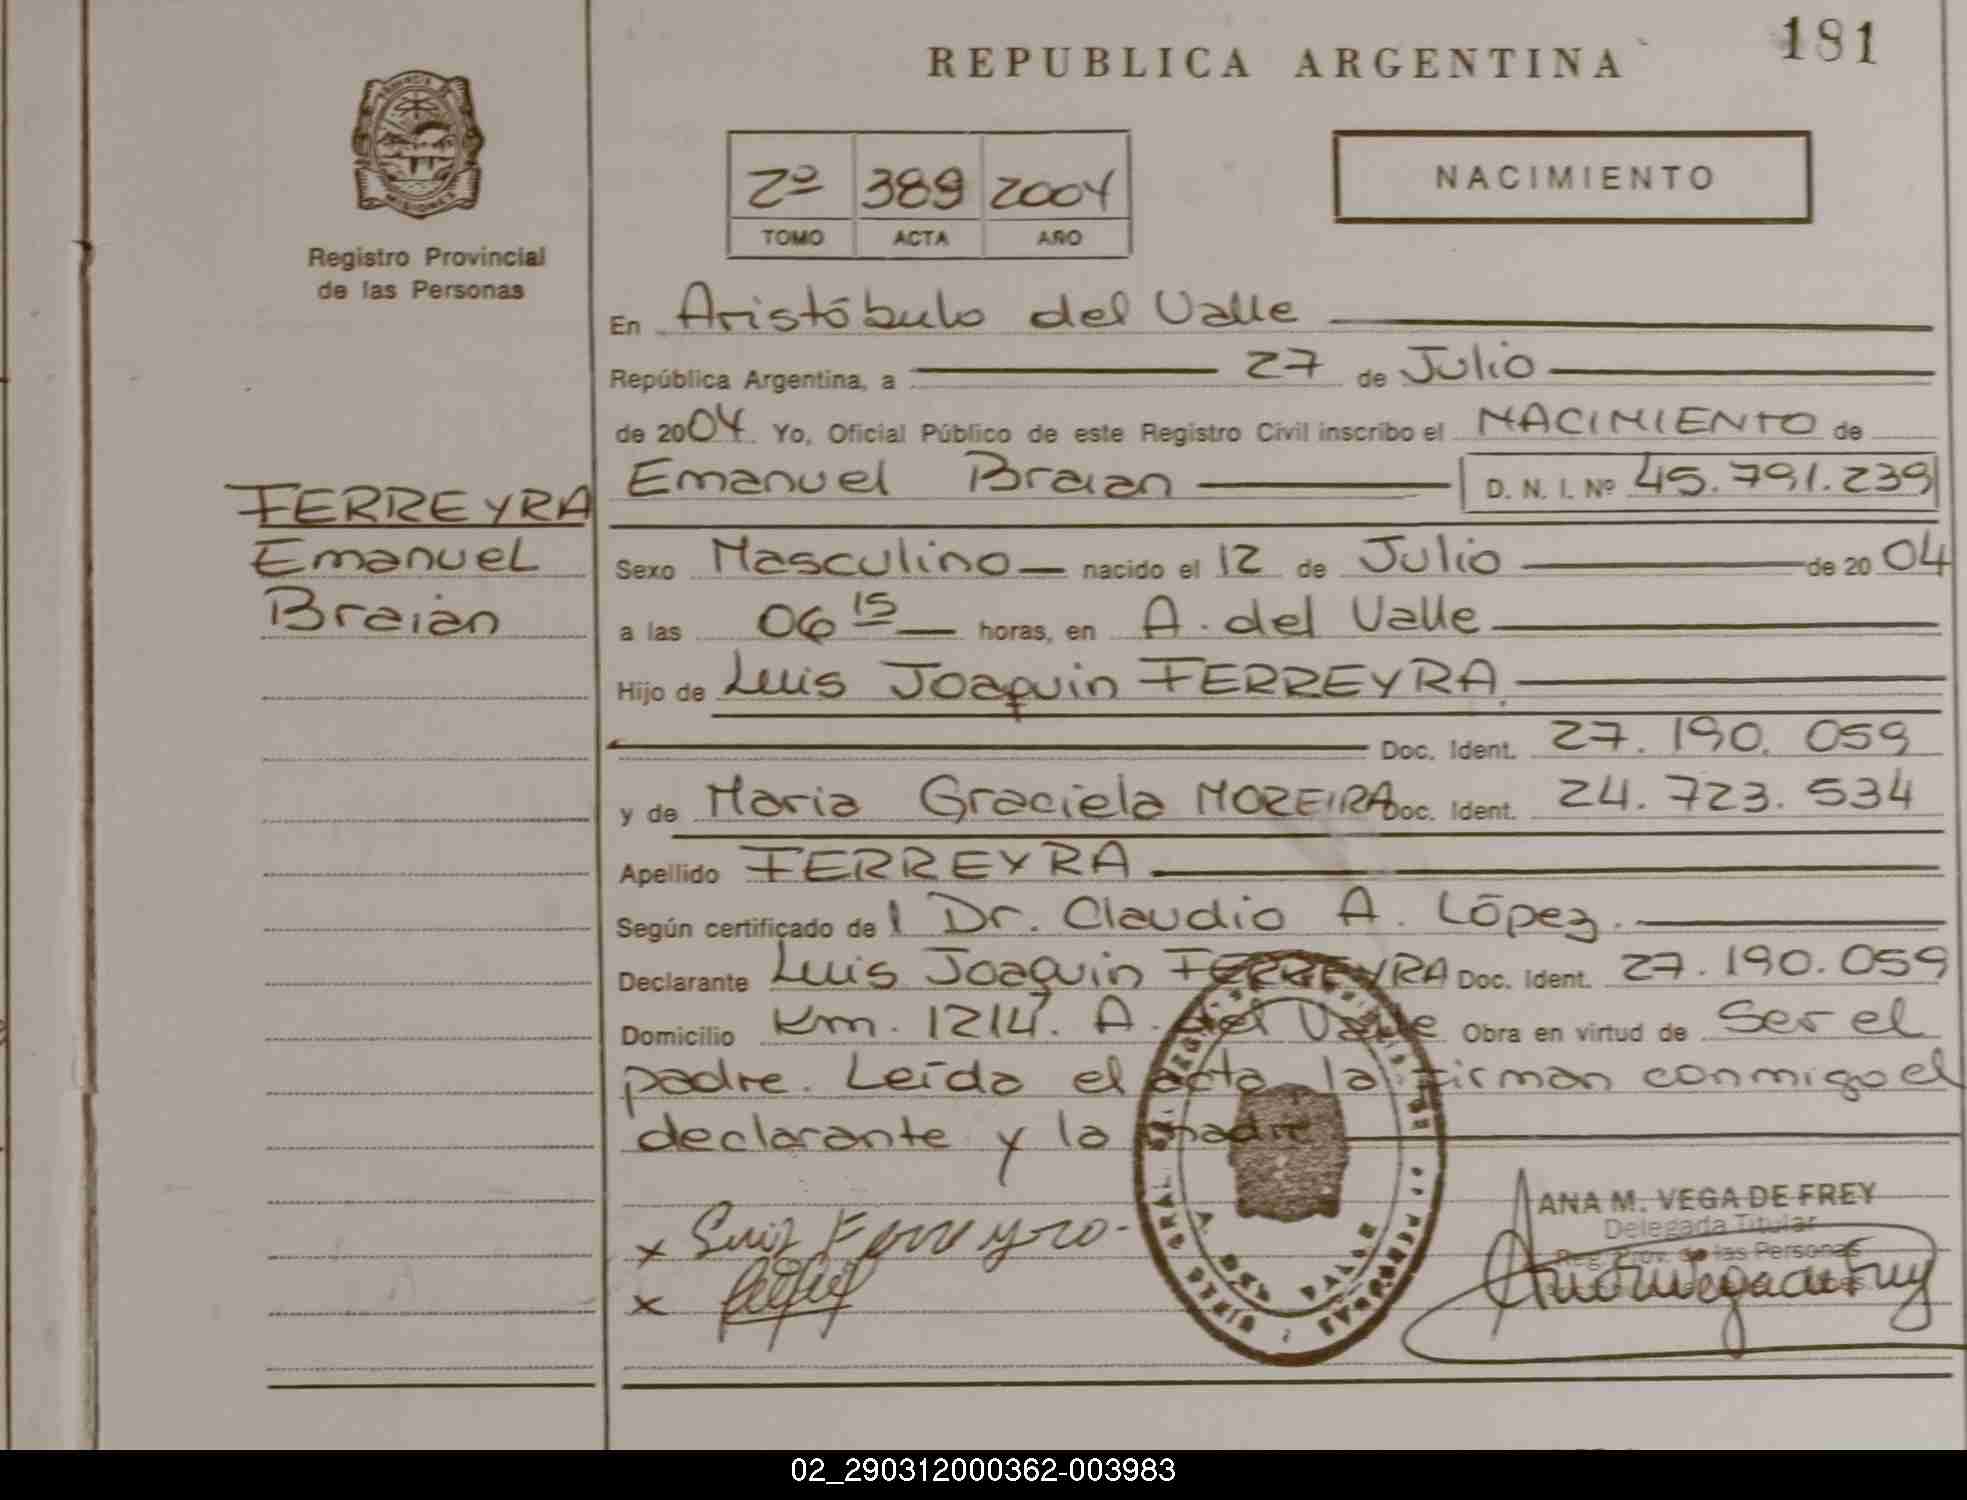 REPUBLICA ARGENTINA
181
NACIMIENTO
2º 389 2004
TOMO ACTA AÑO
Registro Provincial
de las Personas
En Aristóbulo del Valle
República Argentina, a 27 de Julio
de 2004 Yo, Oficial Público de este Registro Civil inscribo el NACIMIENTO de
Emanuel Braian D. N. I. Nº 45.791.239
FERREYRA
Emanuel
Braian
Sexo Masculino nacido el 12 de Julio de 2004
a las 06 15 horas, en A. del Valle
Hijo de Luis Joaquin FERREYRA
Doc. Ident. 27.190.059
y de Maria Graciela MOREIRA Doc. Ident. 24.723.534
Apellido FERREYRA
Según certificado del Dr. Claudio A. López.
Declarante Luis Joaquin FERREYRA Doc. Ident. 27.190.059
Domicilio Km. 1214. A. del Valle Obra en virtud de Ser el
padre. Leída el acta la firman conmigo el
declarante y la madre
x Luis Ferreyra
x
ANA M. VEGA DE FREY
Delegada Titular
Reg. Prov. de las Personas
A. DEL VALLE
02_290312000362-003983